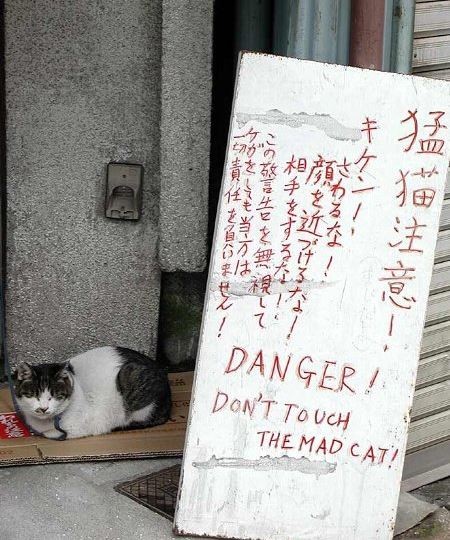 猛猫注意!!
キケン!!
さわるな!
顔を近づけるな!
相手をするな!!
この警告を無視して
ケガをしても当方は
一切責任を負いません!
DANGER!
DON'T TOUCH
THE MAD CAT!